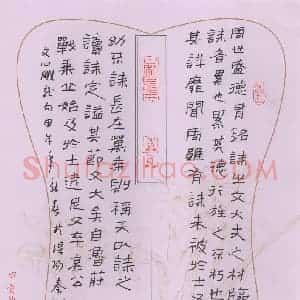 周世盛德有銘誄之文大夫之材臨
誄者累也累其德行旌之不朽也
其詳靡聞周雖有誄未被於士
幼不誄長在萬乘則稱天以誄之
讀誄定謚其節文大矣自魯莊
戰乘丘始及於士逮尼父卒哀公
文心雕龍句甲午年
Shufaziliao.com